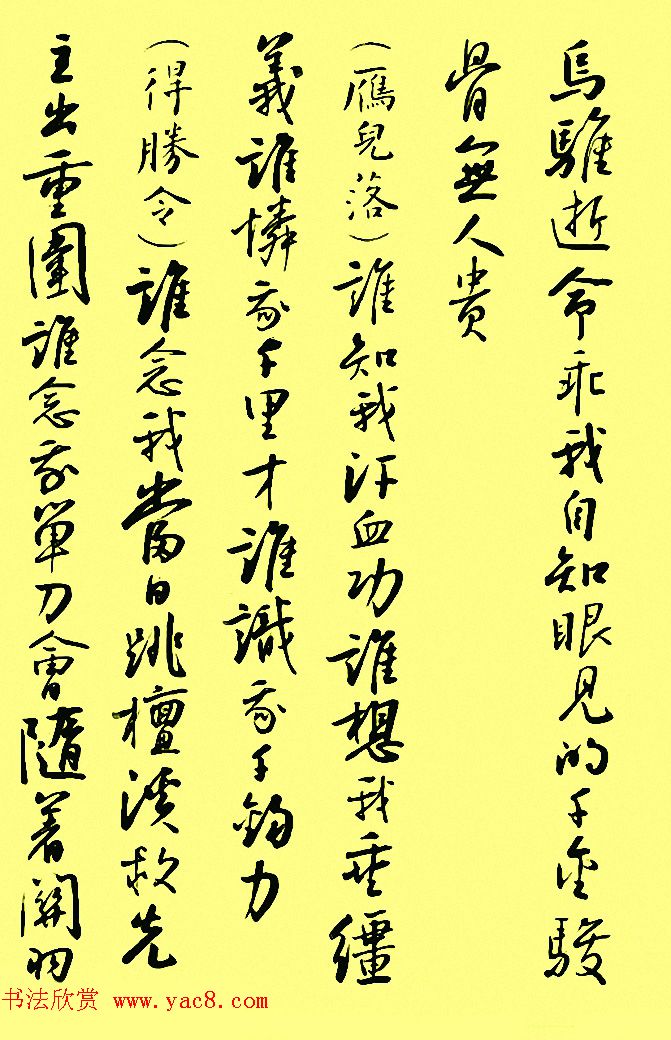 烏騅逝命乖我自知眼見的千金駿
骨無人貴
（雁兒落）誰知我汗血功誰想我垂繮
義誰憐我千里才誰識我千鈞力
（得勝令）誰念我當日跳檀溪救先
主出重圍誰念我單刀會隨着關羽
书法欣赏 www.yac8.com